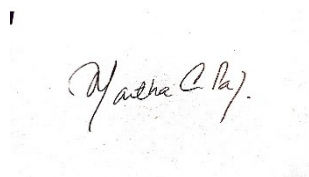 Martha C. Paz.